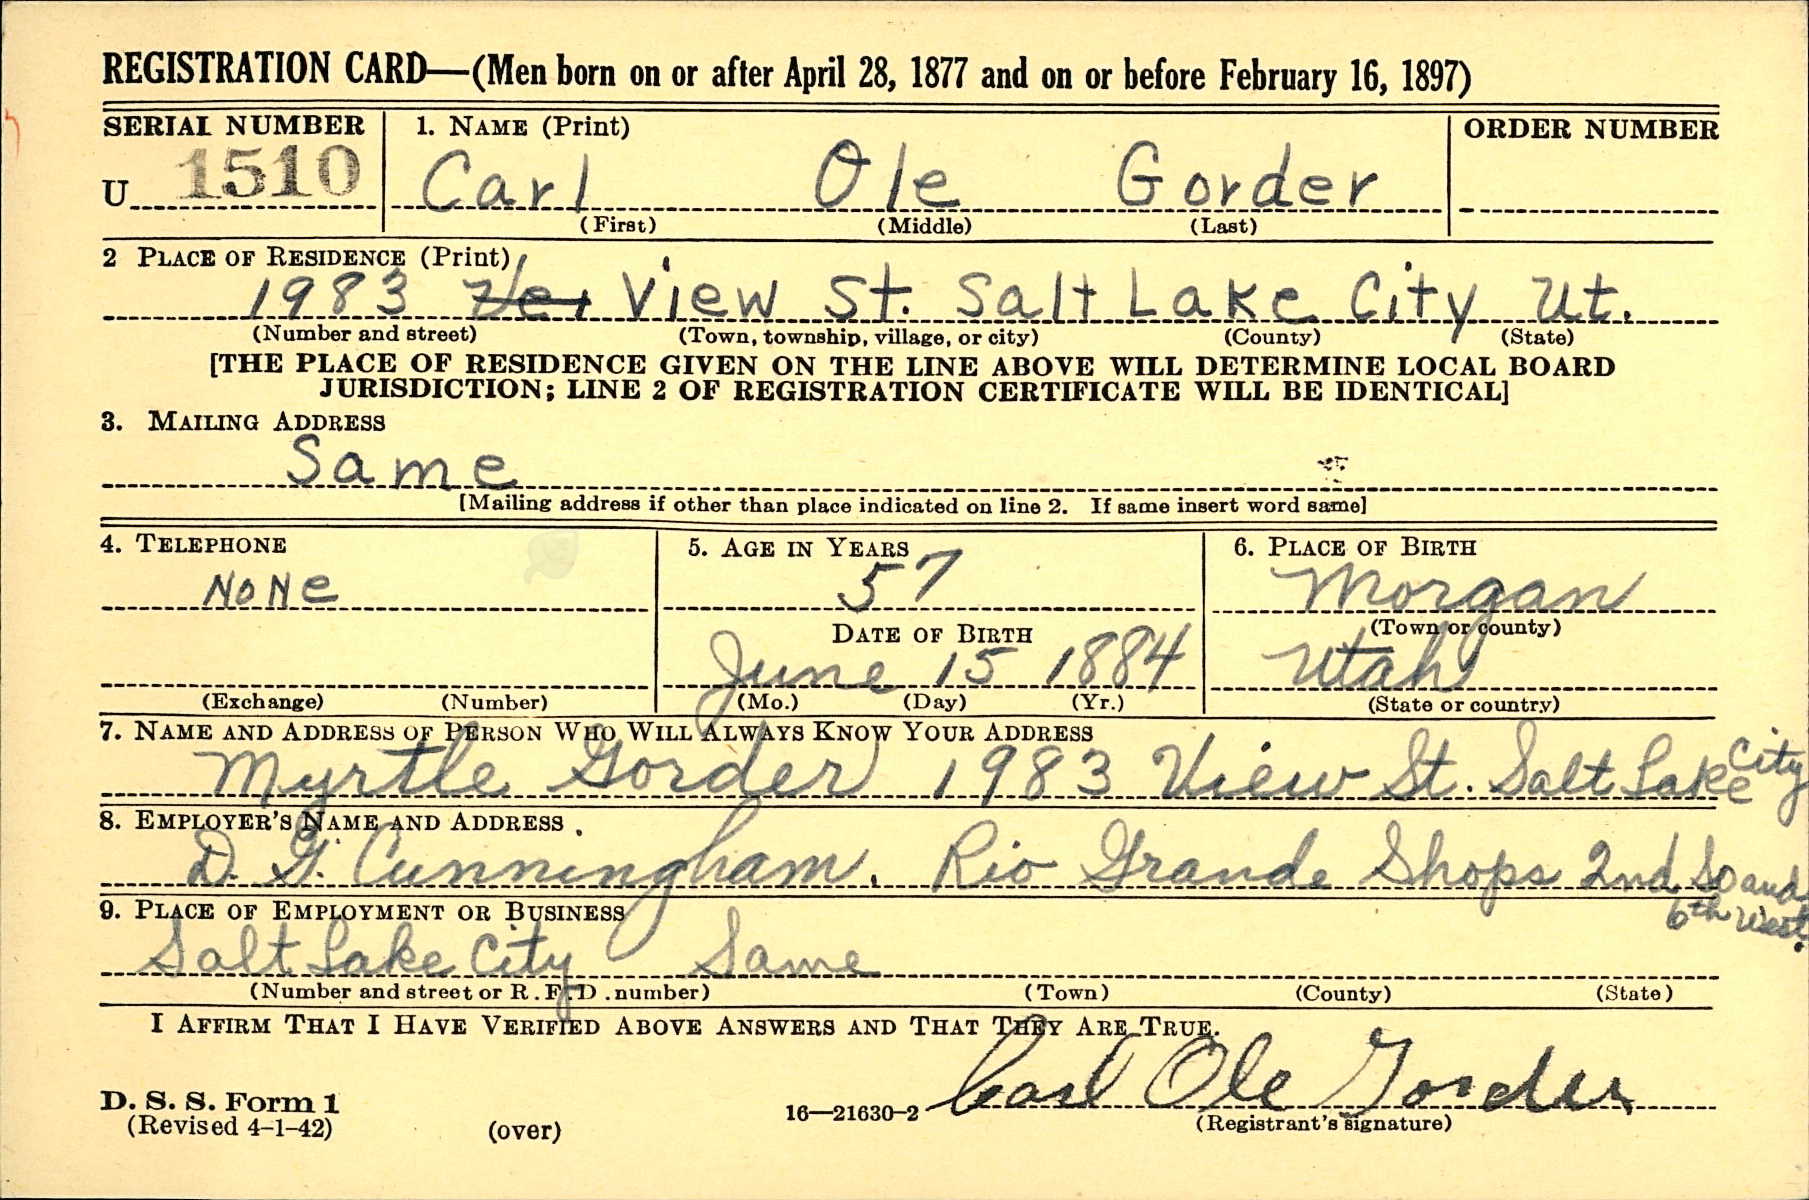 REGISTRATION CARD—(Men born on or after April 28, 1877 and on or before February 16, 1897)
SERIAL NUMBER 1. NAME (Print) ORDER NUMBER
U 1510 Carl Ole Gorder
(First) (Middle) (Last)
2 PLACE OF RESIDENCE (Print)
1983 View St. Salt Lake City Ut.
(Number and street) (Town, township, village, or city) (County) (State)
[THE PLACE OF RESIDENCE GIVEN ON THE LINE ABOVE WILL DETERMINE LOCAL BOARD
JURISDICTION; LINE 2 OF REGISTRATION CERTIFICATE WILL BE IDENTICAL]
3. MAILING ADDRESS
Same
[Mailing address if other than place indicated on line 2. If same insert word same]
4. TELEPHONE 5. AGE IN YEARS 6. PLACE OF BIRTH
None 57 Morgan
DATE OF BIRTH (Town or county)
June 15 1884 Utah
(Exchange) (Number) (Mo.) (Day) (Yr.) (State or country)
7. NAME AND ADDRESS OF PERSON WHO WILL ALWAYS KNOW YOUR ADDRESS
Myrtle Gorder 1983 View St. Salt Lake City
8. EMPLOYER'S NAME AND ADDRESS
D. G. Cunningham. Rio Grande Shops 2nd So and
6th West.
9. PLACE OF EMPLOYMENT OR BUSINESS
Salt Lake City Same
(Number and street or R. F. D. number) (Town) (County) (State)
I AFFIRM THAT I HAVE VERIFIED ABOVE ANSWERS AND THAT THEY ARE TRUE.
Carl Ole Gorder
D. S. S. Form 1
(Revised 4-1-42) (over) 16—21630-2 (Registrant's signature)